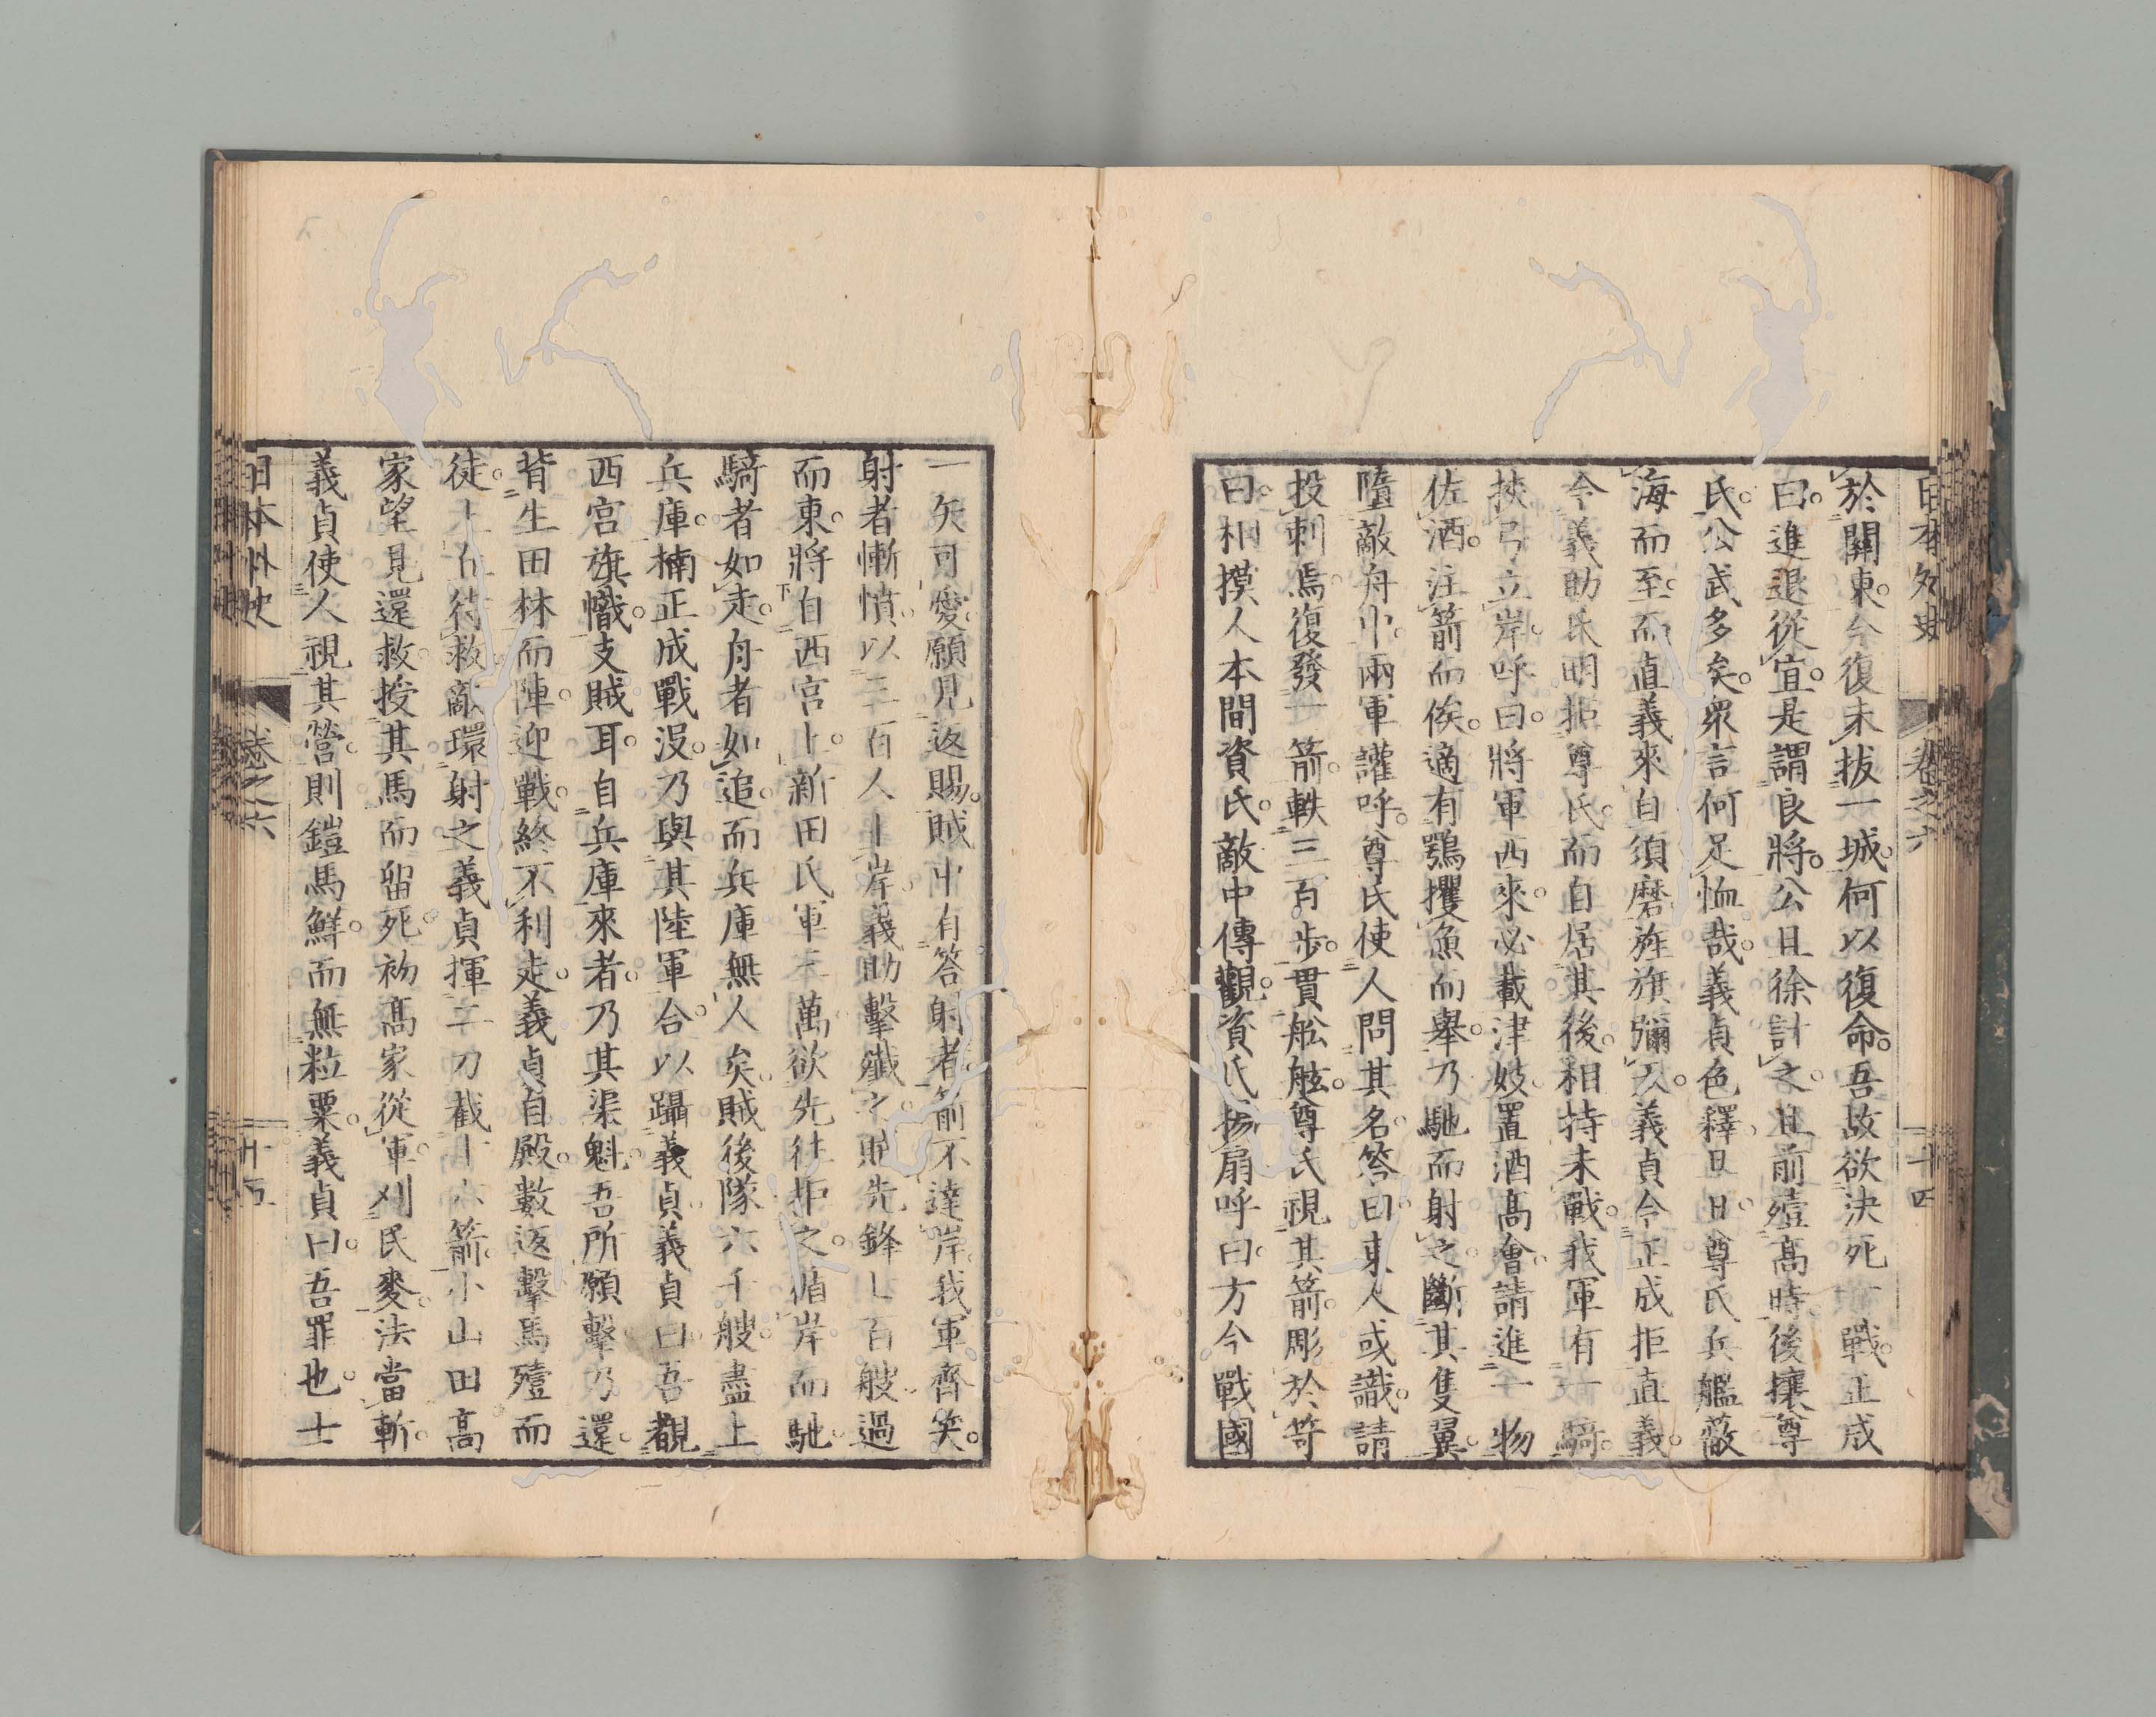 日本外史 卷之六 十四
於關東。今復未拔一城。何以復命。吾故欲決死一戰。正成
曰。進退從宜。是謂良將。公且徐計之。且前殪高時。後攘尊
氏。公武多矣。衆言何足恤哉。義貞色釋。旦日。尊氏兵艦蔽
海而至。而直義來自須磨。旌旗彌天。義貞令正成拒直義。
令義助氏明拒尊氏。而自居其後。相持未戰。我軍有一騎。
挾弓立岸。呼曰。將軍西來。必載津妓置酒高會。請進一物
佐酒。注箭而俟。適有鶚攫魚而舉。乃馳而射之。斷其隻翼。
墮敵舟中。兩軍讙呼。尊氏使人問其名。答曰。東人或識。請
投刺焉。復發一箭。軼三百步。貫舩舷。尊氏視其箭。彫於笴
曰。相摸人本間資氏。敵中傳觀。資氏揚扇呼曰。方今戰國
一矢可愛。願見返賜。賊中有答射者。箭不達岸。我軍齊笑。
射者慚憤。以二百人上岸。義助擊殲之。賊先鋒七百艘。過
而東。將自西宮上。新田氏軍三萬欲先往拒之。循岸而馳。
騎者如走。舟者如追。而兵庫無人矣。賊後隊六千艘。盡上
兵庫。楠正成戰沒。乃與其陸軍合。以躡義貞。義貞曰。吾觀
西宮旗幟。支賊耳。自兵庫來者。乃其渠魁。吾所願擊。乃還。
背生田林而陣。迎戰。終不利走。義貞自殿。數返擊。馬殪而
徒。上丘待救。敵環射之。義貞揮二刀截十六箭。小山田高
家望見還救。授其馬而留死。初高家從軍。刈民麥。法當斬。
義貞使人視其營。則鎧馬鮮。而無粒粟。義貞曰。吾罪也。士
日本外史 卷之六 十五